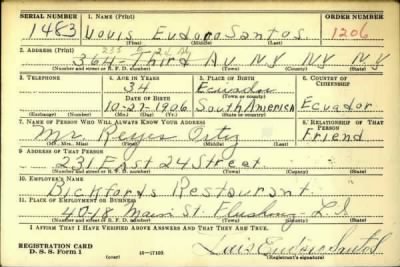 SERIAL NUMBER 1. NAME (Print) ORDER NUMBER
1483 Louis Eudoro Santos. 1206
(First) (Middle) (Last)
2. ADDRESS (Print)
235 E-22 St
364-Third Av NY NY NY
(Number and street or R. F. D. number) (Town) (County) (State)
3. TELEPHONE 4. AGE IN YEARS 5. PLACE OF BIRTH 6. COUNTRY OF CITIZENSHIP
34 Ecuador
DATE OF BIRTH (Town or county)
10-27-1906 South America Ecuador
(Exchange) (Number) (Mo.) (Day) (Yr.) (State or country)
7. NAME OF PERSON WHO WILL ALWAYS KNOW YOUR ADDRESS 8. RELATIONSHIP OF THAT PERSON
Mr. Reyes Friend
(Mr., Mrs., Miss) (First) (Middle) (Last)
9. ADDRESS OF THAT PERSON
231 East 24 Street
(Number and street or R. F. D. number) (Town) (County) (State)
10. EMPLOYER'S NAME
Bickfords Restaurant
11. PLACE OF EMPLOYMENT OR BUSINESS
40-18 Main St. Flushing L.I.
(Number and street or R. F. D. number) (Town) (County) (State)
I AFFIRM THAT I HAVE VERIFIED ABOVE ANSWERS AND THAT THEY ARE TRUE.
REGISTRATION CARD
D. S. S. Form 1 16-17105 Luis Eudoro Santos
(Registrant's signature)